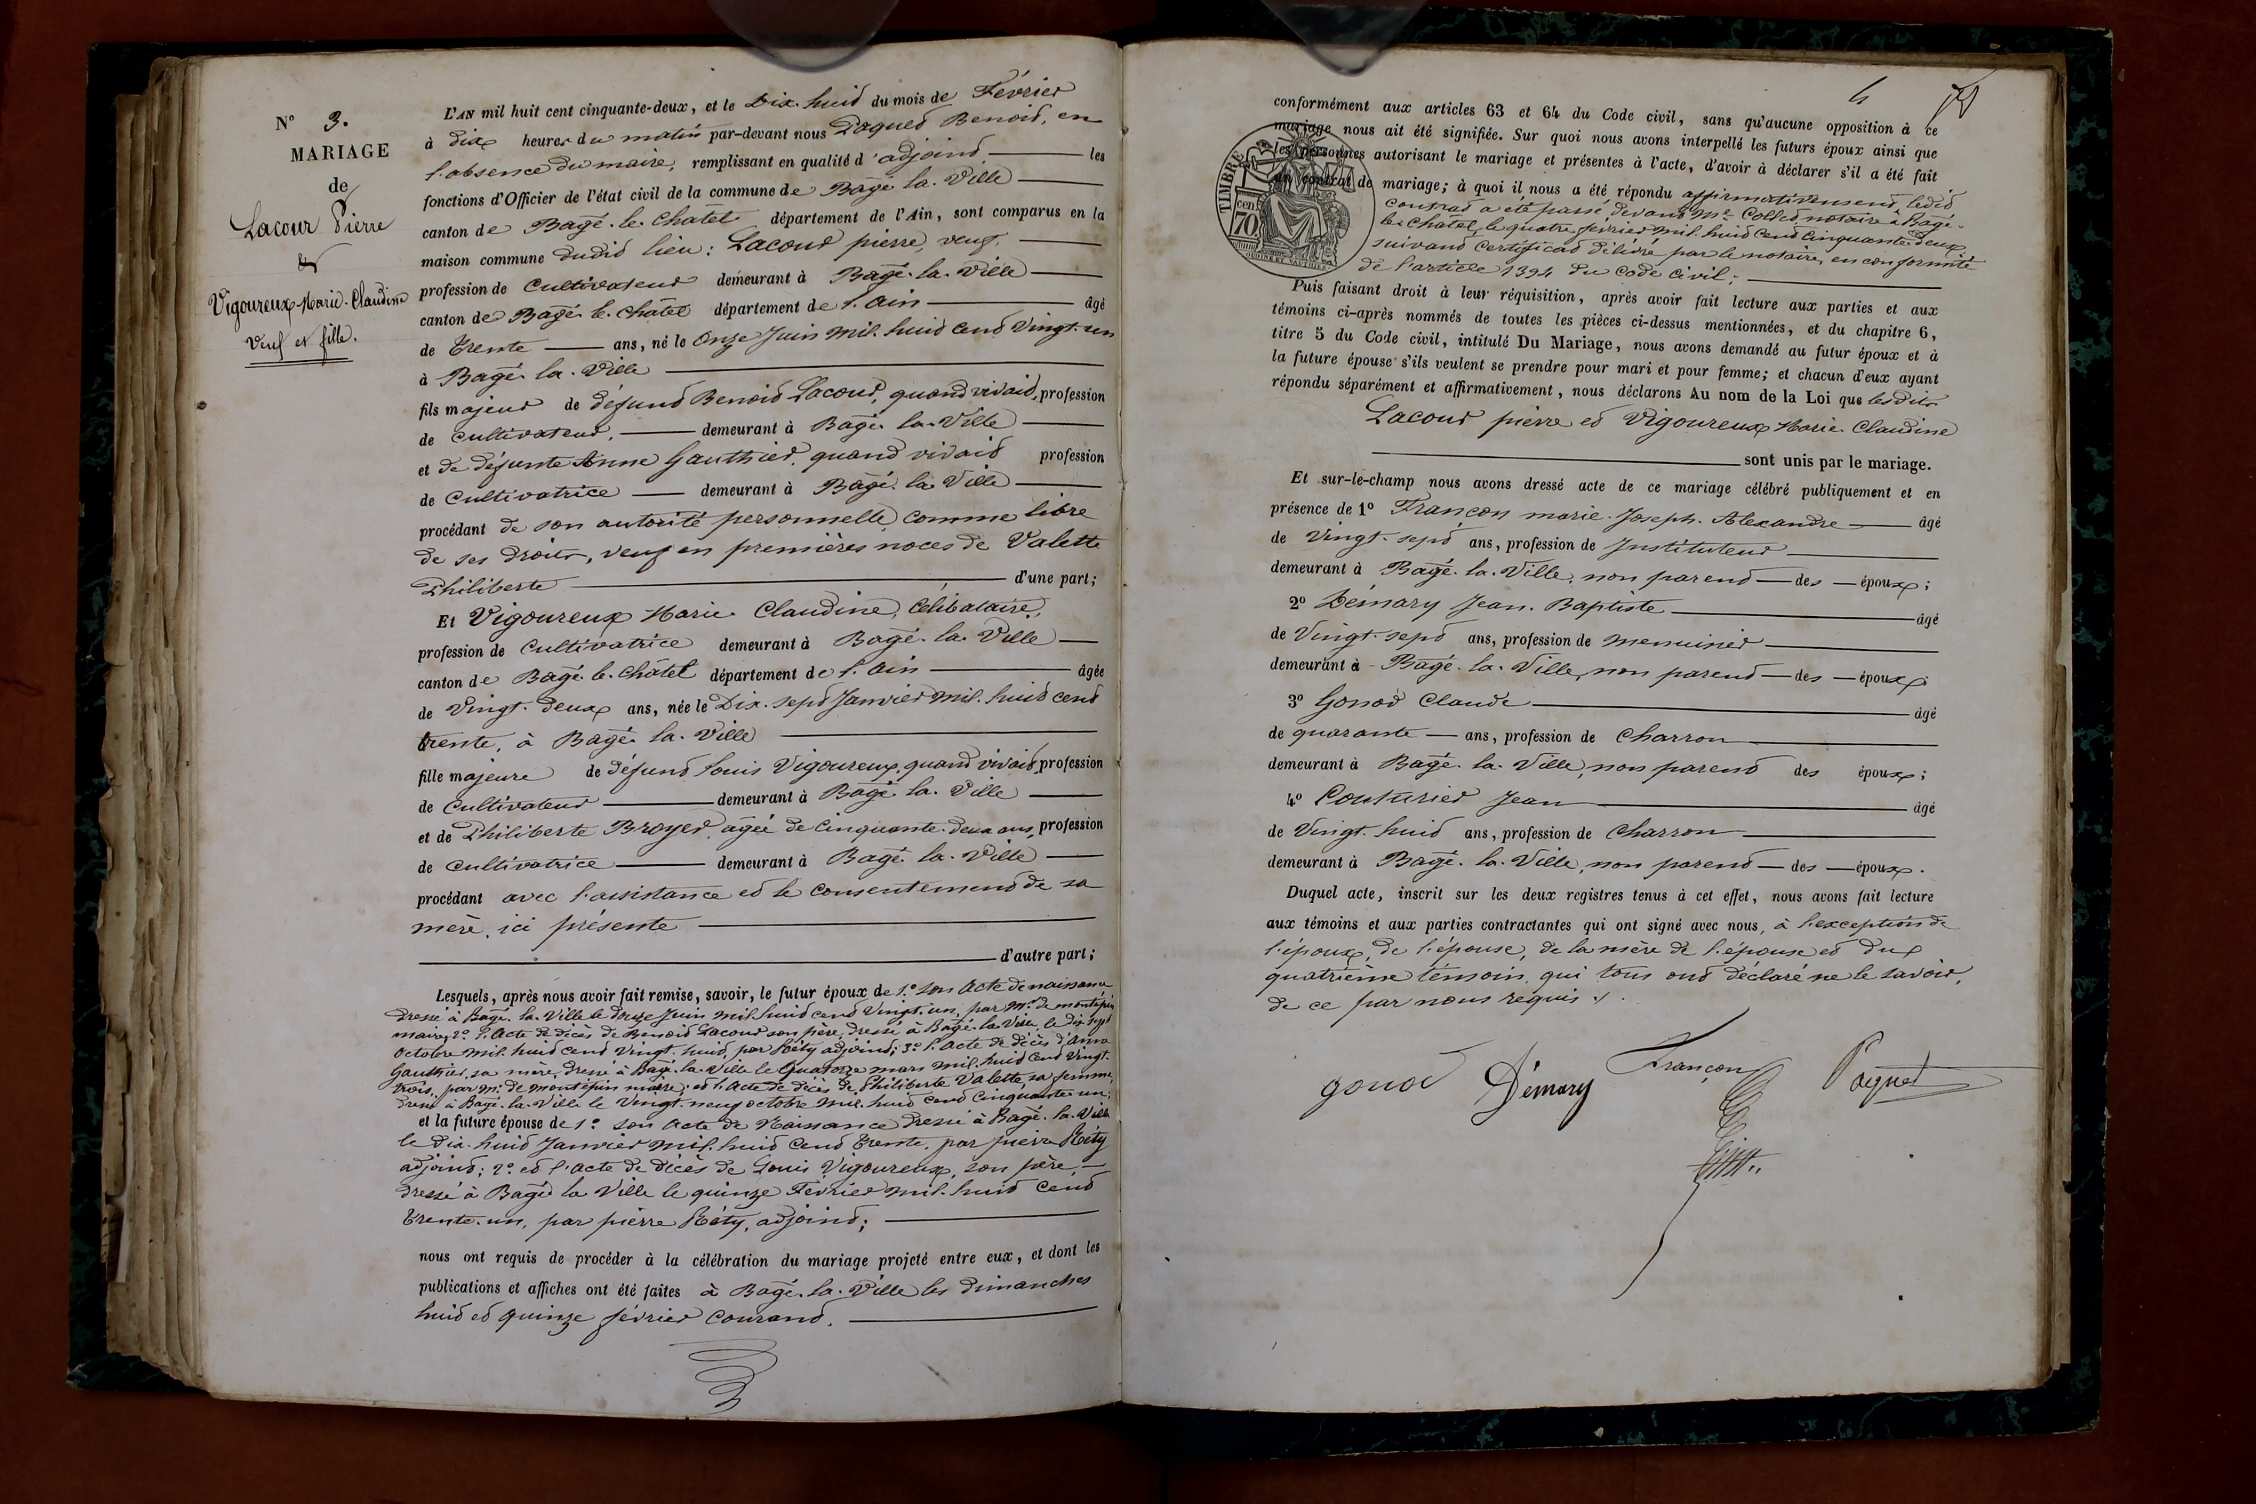 N° 3.
MARIAGE
de
Lacour Pierre
et
Vigoureux Marie-Claudine
veuf et fille.
L'AN mil huit cent cinquante-deux, et le Dix-huit du mois de Février
à dix heures du matin par-devant nous Paquet Benoit, en
l'absence du maire, remplissant en qualité d'adjoint les
fonctions d'Officier de l'état civil de la commune de Bagé-la-Ville
canton de Bagé-le-Châtel département de l'Ain, sont comparus en la
maison commune dudit lieu : Lacour pierre, veuf,
profession de Cultivateur demeurant à Bagé-la-Ville
canton de Bagé-le-Châtel département de l'Ain âgé
de Trente ans, né le onze Juin mil-huit cent vingt-un
à Bagé-la-Ville
fils majeur de défunt Benoit Lacour, quand vivait, profession
de cultivateur, demeurant à Bagé-la-Ville
et de défunte Anne Gauthier, quand vivait profession
de cultivatrice demeurant à Bagé-la-Ville
procédant de son autorité personnelle comme libre
de ses droits, veuf en premières noces de Valette
Philiberte d'une part;
Et Vigoureux Marie-Claudine, célibataire,
profession de Cultivatrice demeurant à Bagé-la-Ville
canton de Bagé-le-Châtel département de l'Ain âgée
de Vingt-deux ans, née le Dix-sept Janvier mil-huit cent
trente, à Bagé-la-Ville
fille majeure de défunt Louis Vigoureux, quand vivait, profession
de Cultivateur demeurant à Bagé-la-Ville
et de Philiberte Broyer, agée de Cinquante-deux ans, profession
de cultivatrice demeurant à Bagé-la-Ville
procédant avec l'assistance et le consentement de sa
mère, ici présente
d'autre part;
Lesquels, après nous avoir fait remise, savoir, le futur époux de 1° son Acte de naissance
dressé à Bagé-la-Ville le douze Juin mil-huit cent vingt-un, par Mr de montépin
maire; 2° l'Acte de décès de Benoit Lacour son père, dressé à Bagé-la-Ville, le dix-sept
octobre mil-huit cent vingt-huit, par Réty adjoint; 3° l'acte de décès d'Anne
Gauthier, sa mère, dressé à Bagé-la-Ville le Quatorze mars mil-huit cent vingt-
trois, par Mr de montépin maire; et l'Acte de décès de Philiberte Valette, sa femme,
dressé à Bagé-la-Ville le Vingt-neuf octobre mil-huit cent cinquante-un;
et la future épouse de 1° son Acte de Naissance dressé à Bagé-la-Ville
le dix-huit Janvier mil-huit cent trente, par pierre Réty
adjoint; 2° et l'acte de décès de Louis Vigoureux, son père,
dressé à Bagé la Ville le quinze Février mil-huit cent
trente-un, par pierre Réty, adjoint;
nous ont requis de procéder à la célébration du mariage projeté entre eux, et dont les
publications et affiches ont été faites à Bagé-la-Ville les dimanches
huit et quinze février courant.
4
conformément aux articles 63 et 64 du Code civil, sans qu'aucune opposition à ce
mariage nous ait été signifiée. Sur quoi nous avons interpellé les futurs époux ainsi que
les personnes autorisant le mariage et présentes à l'acte, d'avoir à déclarer s'il a été fait
un contrat de mariage; à quoi il nous a été répondu affirmativement, ledit
contrat a été passé devant Me Collet notaire à Bagé-
le-Châtel, le quatre février mil-huit cent cinquante-deux
suivant certificat délivré par le notaire, en conformité
de l'article 1394 du code civil;
TIMBRE
70 cent.
Puis faisant droit à leur réquisition, après avoir fait lecture aux parties et aux
témoins ci-après nommés de toutes les pièces ci-dessus mentionnées, et du chapitre 6,
titre 5 du Code civil, intitulé Du Mariage, nous avons demandé au futur époux et à
la future épouse s'ils veulent se prendre pour mari et pour femme; et chacun d'eux ayant
répondu séparément et affirmativement, nous déclarons Au nom de la Loi que lesdits
Lacour pierre et Vigoureux Marie-Claudine
sont unis par le mariage.
Et sur-le-champ nous avons dressé acte de ce mariage célébré publiquement et en
présence de 1° Françon marie-Joseph-Alexandre âgé
de vingt-sept ans, profession de Instituteur
demeurant à Bagé-la-Ville, non parent des époux;
2° Démary Jean-Baptiste âgé
de Vingt-sept ans, profession de menuisier
demeurant à Bagé-la-Ville, non parent des époux;
3° Gonod Claude âgé
de quarante ans, profession de Charron
demeurant à Bagé-la-Ville, non parent des époux;
4° Couturier Jean âgé
de Vingt-huit ans, profession de Charron
demeurant à Bagé-la-Ville, non parent des époux.
Duquel acte, inscrit sur les deux registres tenus à cet effet, nous avons fait lecture
aux témoins et aux parties contractantes qui ont signé avec nous, à l'exception de
l'époux, de l'épouse, de la mère de l'épouse et du
quatrième témoin, qui tous ont déclaré ne le savoir,
de ce par nous requis.
gonod Démary Françon Paquet